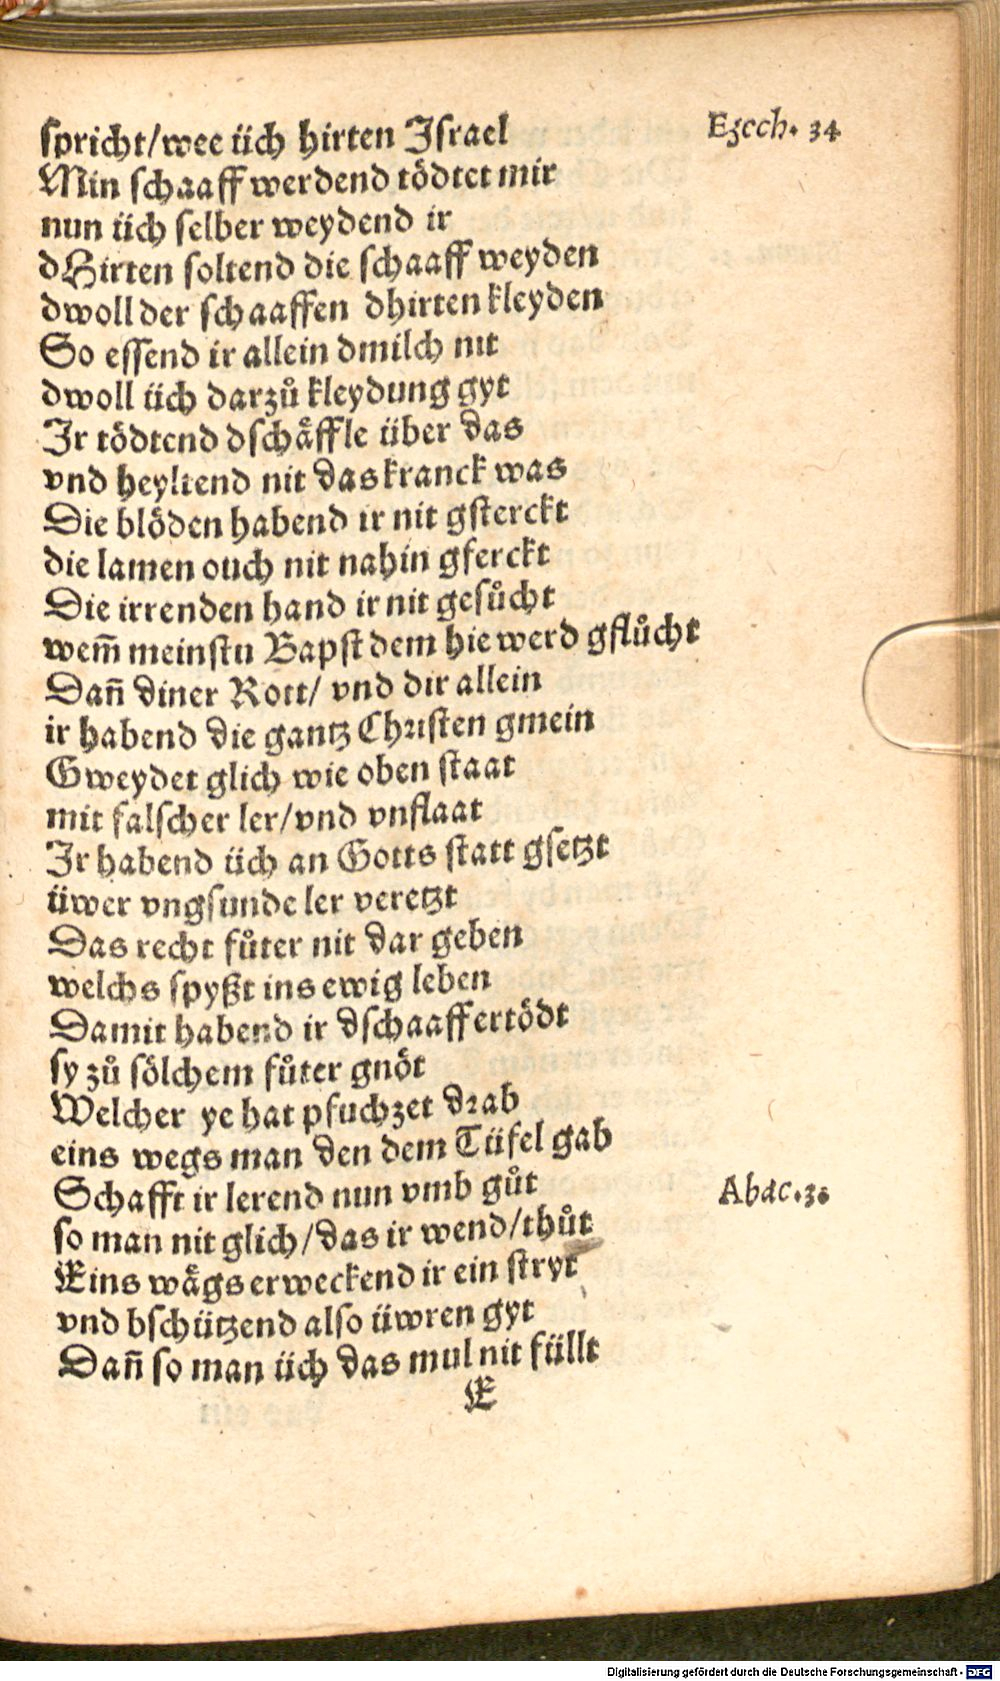 spricht/wee üch hirten Israel
Ezech. 34
Min schaaff werdend tödtet mir
nun üch selber weydend ir
dHirten soltend die schaaff weyden
dwoll der schaaffen dhirten kleyden
So essend ir allein dmilch nit
dwoll üch darzů kleydung gyt
Ir tödtend dschäffle über das
vnd heyltend nit das kranck was
Die blöden habend ir nit gsterckt
die lamen ouch nit nahin gferckt
Die irrenden hand ir nit gesůcht
wem̃ meinstu Bapst dem hie werd gflůcht
Dañ diner Rott/ vnd dir allein
ir habend die gantz Christen gmein
Gweydet glich wie oben staat
mit falscher ler/vnd vnflaat
Ir habend üch an Gotts statt gsetzt
üwer vngsunde ler veretzt
Das recht fůter nit dar geben
welchs spyßt ins ewig leben
Damit habend ir dschaaff ertödt
sy zů sölchem fůter gnöt
Welcher ye hat pfuchzet drab
eins wegs man den dem Tüfel gab
Schafft ir lerend nun vmb gůt
Abac.3.
so man nit glich/das ir wend/thůt
Eins wägs erweckend ir ein stryt
vnd bschützend also üwren gyt
Dañ so man üch das mul nit füllt
E
Digitalisierung gefördert durch die Deutsche Forschungsgemeinschaft - DFG